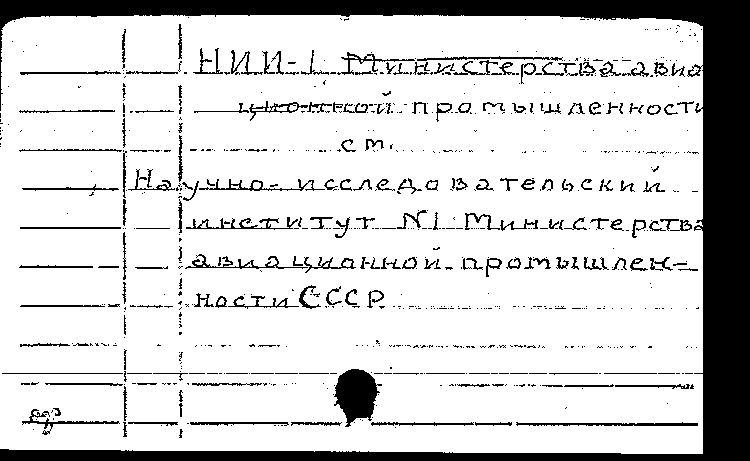 НИИ-1 Министерства авиа
ционной промышленности
см.
Научно-исследовательский
институт N1 Министерства
авиационной промышлен-
ности СССР